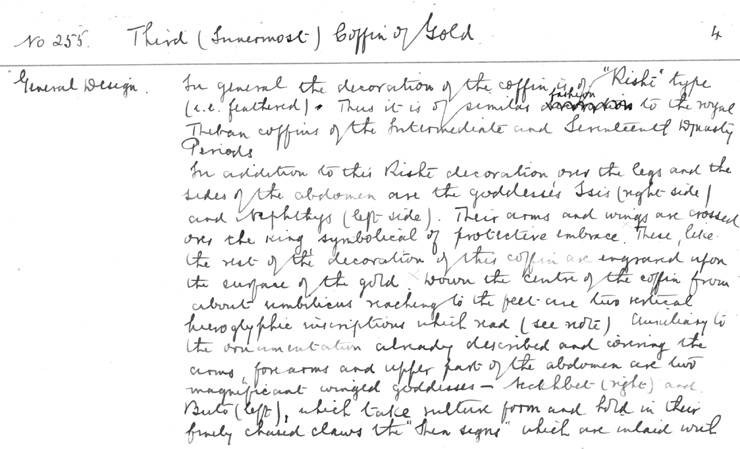 No 255. Third (Innermost) Coffin of Gold 4
General Design. In general the decoration of the coffin is of "Rishi" type
(i.e. feathered). Thus it is of similar fashion to the royal
Theban coffins of the Intermediate and Seventeenth Dynasty
Periods
In addition to this Rishi decoration over the legs and the
sides of the abdomen are the goddesses Isis (right side)
and Nephthys (left side). Their arms and wings are crossed
over the king symbolical of protective embrace. These, like
the rest of the decoration of this coffin are engraved upon
the surface of the gold. Down the centre of the coffin from
about umbilicus reaching to the feet are two vertical
hieroglyphic inscriptions which read (see note) Auxiliary to
the ornamentation already described and covering the
arms, forearms and upper part of the abdomen are two
magnificant winged goddesses — Nekhbet (right) and
Buto (left), which take vulture form and hold in their
finely chased claws the "Shen signs" which are inlaid with